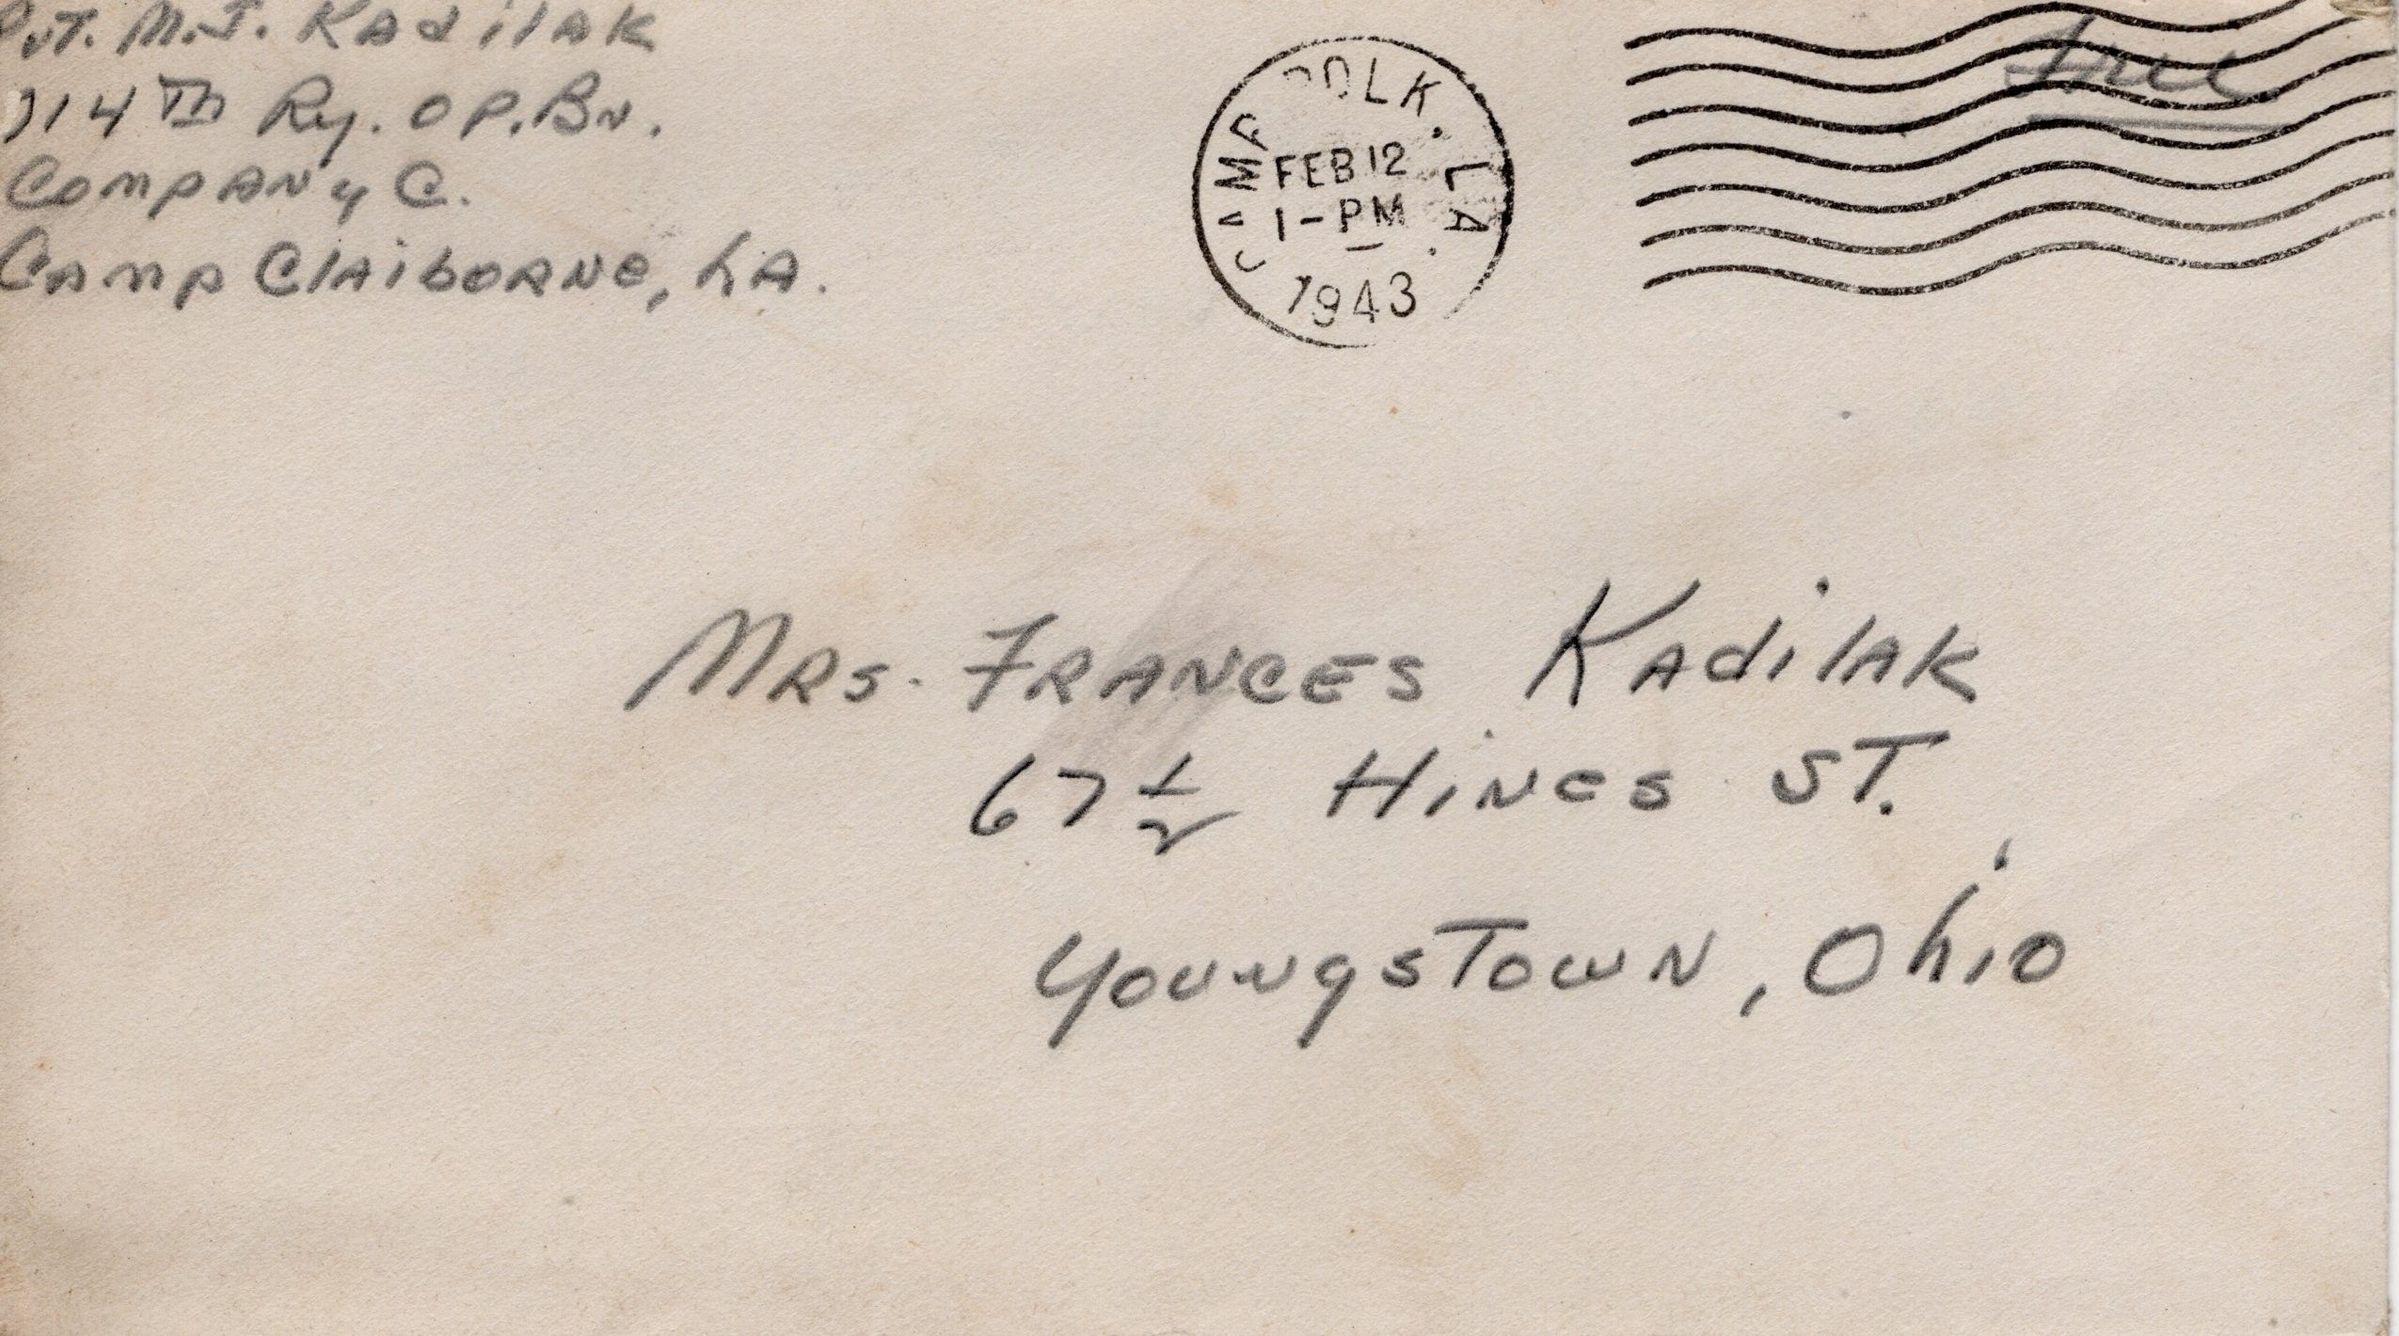 Pvt. M.J. Kadilak
714th Ry. OP. Bn.
Company C.
Camp Claiborne, LA.
CAMP POLK. LA.
FEB 12
1-PM
1943
Free
Mrs. Frances Kadilak
67 1/2 Hines ST.
Youngstown, Ohio